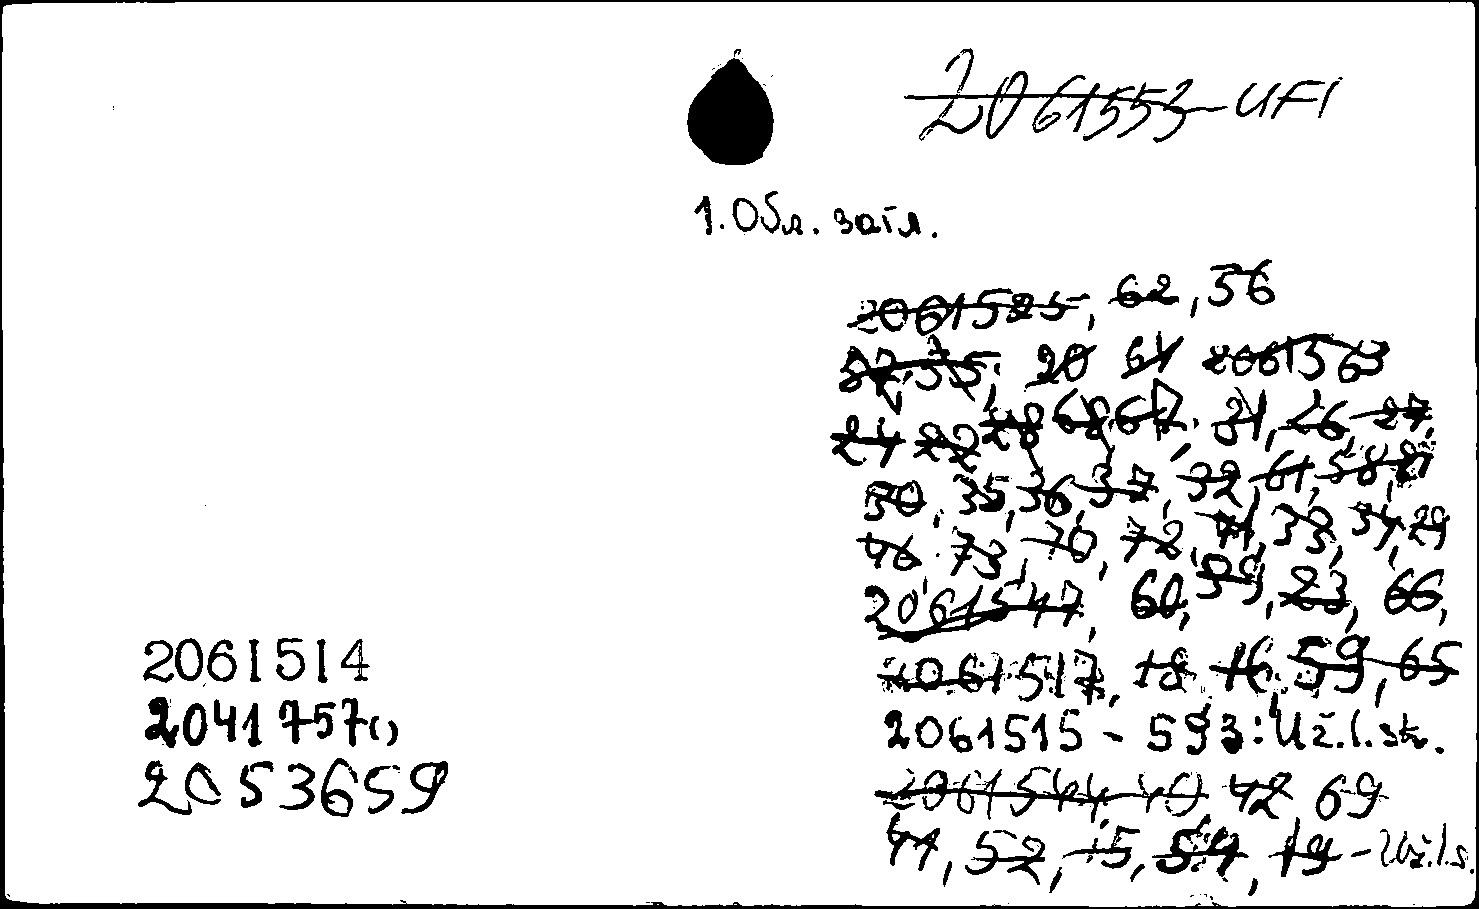 2061553-UFI
1. Обл. затл.
2061525, 62, 56
20 64 2061563
24 22 28 68, 67, 31, 26, 27,
30, 35, 36, 37, 32, 61, 58,
46 73, 70, 72, 71, 33, 34, 29
2061547, 60, 39, 23, 66,
2061517, 18, 16, 59, 65
2061514
2041757()
2061515 - 593: Už.l.
2053659
2061544, 40, 42, 69
41, 52, 15, 54, 19 -